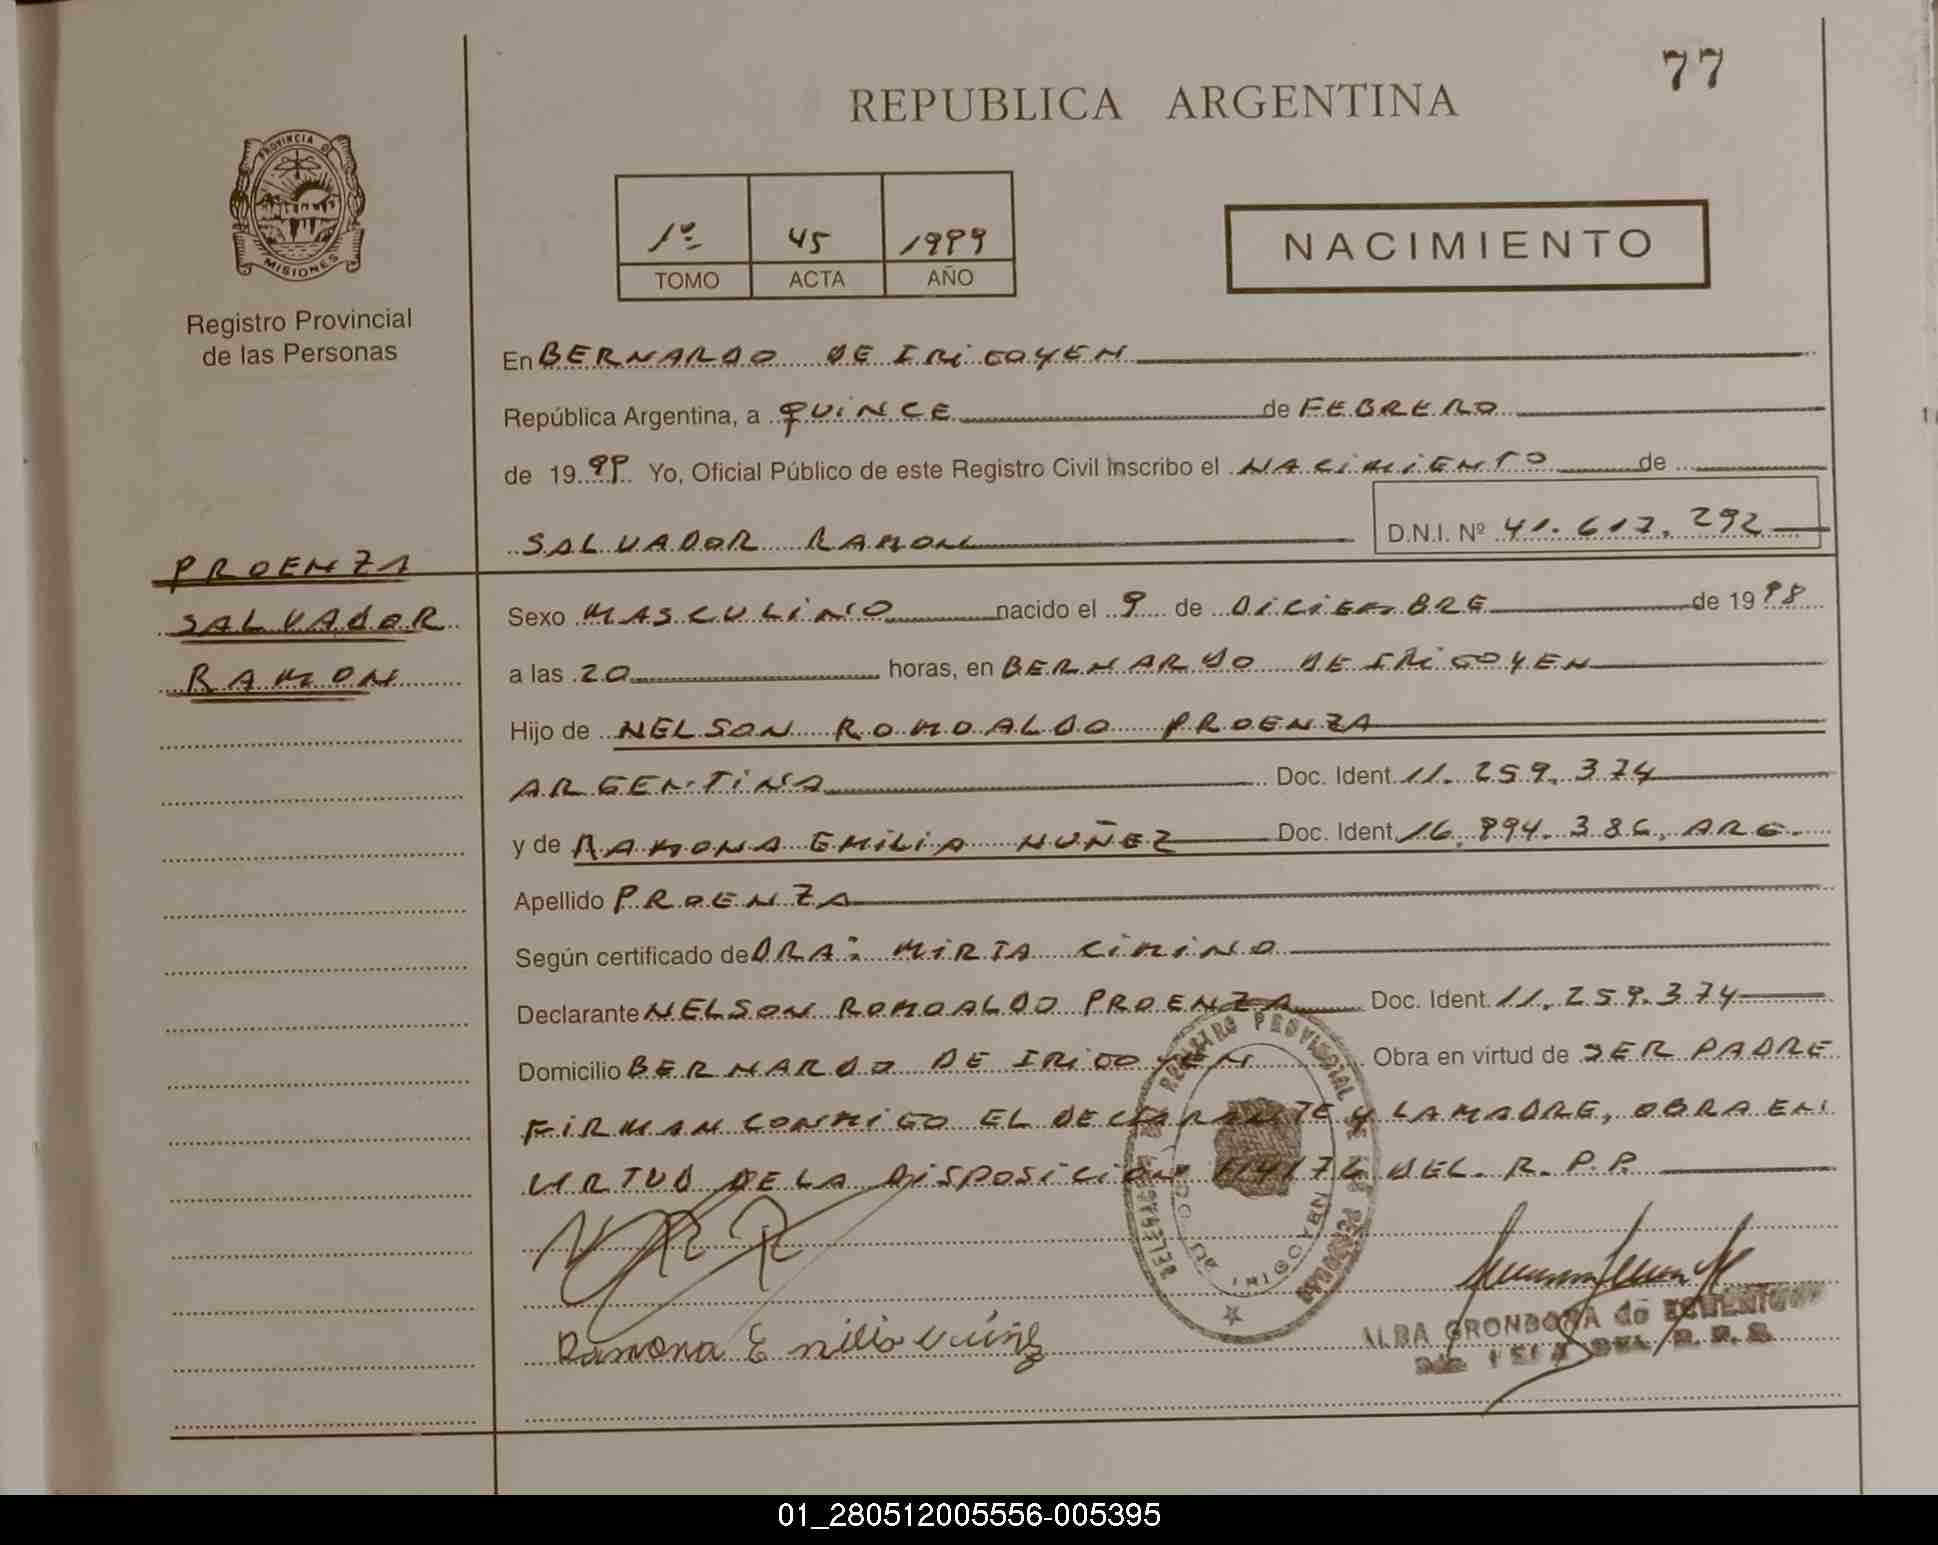 77
REPUBLICA ARGENTINA
PROVINCIA DE
MISIONES
Registro Provincial
de las Personas
1º 45 1999
TOMO ACTA AÑO
NACIMIENTO
En BERNARDO DE IRIGOYEN
República Argentina, a QUINCE de FEBRERO
de 1999 Yo, Oficial Público de este Registro Civil Inscribo el NACIMIENTO de
SALVADOR RAMON D.N.I. Nº 41.617.292
PROENZA
SALVADOR
RAMON
Sexo MASCULINO nacido el 9 de DICIEMBRE de 1998
a las 20 horas, en BERNARDO DE IRIGOYEN
Hijo de NELSON ROMOALDO PROENZA
ARGENTINA Doc. Ident. 11.259.374
y de RAMONA EMILIA NUÑEZ Doc. Ident. 16.894.386, ARG.
Apellido PROENZA
Según certificado de DRA: MIRTA CIMINO
Declarante NELSON ROMOALDO PROENZA Doc. Ident. 11.259.374
Domicilio BERNARDO DE IRIGOYEN Obra en virtud de SER PADRE
FIRMAN CONMIGO EL DECLARANTE Y LA MADRE, OBRA EN
VIRTUD DE LA DISPOSICION DEL R.P.P.
REGISTRO PROVINCIAL DE LAS PERSONAS
DELEGACION
BDO DE IRIGOYEN
Ramona Emilia Núñez
ALBA GRONDONA de
R.P.P.
01_280512005556-005395